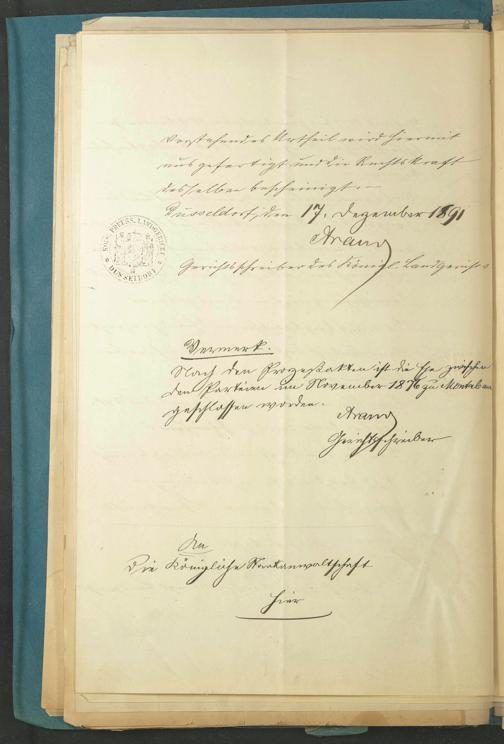 Vorstehendes Urtheil wird hiermit
ausgefertigt und die Rechtskraft
desselben bescheinigt.
Düsseldorf, den 17. Dezember 1891
Gerichtsschreiber des Königl. Landgerichts
KÖNIGL. PREUSS. LANDGERICHT
DÜSSELDORF
Vermerk.
Nach den Prozeßakten ist die Ehe zwischen
den Parteien im November 1876 zu
geschlossen worden.
Gerichtsschreiber
An
die Königliche Staatsanwaltschaft
hier